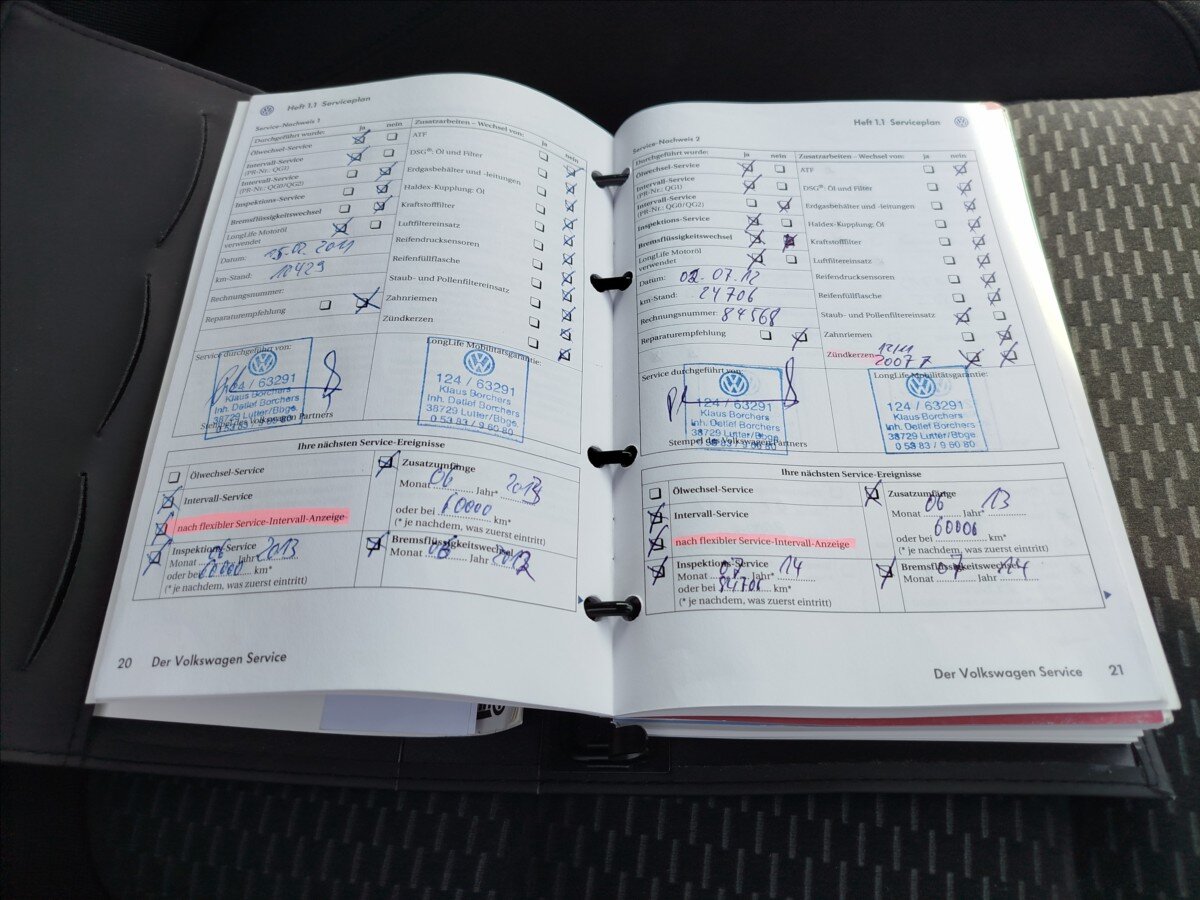 Heft 1.1 Serviceplan
Service-Nachweis 1
Durchgeführt wurde: ja nein
Ölwechsel-Service
Intervall-Service
(PR-Nr.: QG1)
Intervall-Service
(PR-Nr.: QG0/QG2)
Inspektions-Service
Bremsflüssigkeitswechsel
LongLife Motoröl
verwendet
Datum: 15.02.2011
km-Stand: 10429
Rechnungsnummer:
Reparaturempfehlung
Zusatzarbeiten – Wechsel von: ja nein
ATF
DSG®: Öl und Filter
Erdgasbehälter und -leitungen
Haldex-Kupplung: Öl
Kraftstofffilter
Luftfiltereinsatz
Reifendrucksensoren
Reifenfüllflasche
Staub- und Pollenfiltereinsatz
Zahnriemen
Zündkerzen
Service durchgeführt von:
124 / 63291
Klaus Borchers
Inh. Detlef Borchers
38729 Lutter/Bbge.
0 53 83 / 9 60 80
Stempel des Volkswagen Partners
LongLife Mobilitätsgarantie:
124 / 63291
Klaus Borchers
Inh. Detlef Borchers
38729 Lutter/Bbge.
0 53 83 / 9 60 80
Ihre nächsten Service-Ereignisse
Ölwechsel-Service
Intervall-Service
nach flexibler Service-Intervall-Anzeige
Inspektions-Service
Monat 06 Jahr* 2013
oder bei 60000 km*
(* je nachdem, was zuerst eintritt)
Zusatzumfänge
Monat 06 Jahr* 2013
oder bei 60000 km*
(* je nachdem, was zuerst eintritt)
Bremsflüssigkeitswechsel
Monat 06 Jahr
20 Der Volkswagen Service
Heft 1.1 Serviceplan
Service-Nachweis 2
Durchgeführt wurde: ja nein
Ölwechsel-Service
Intervall-Service
(PR-Nr.: QG1)
Intervall-Service
(PR-Nr.: QG0/QG2)
Inspektions-Service
Bremsflüssigkeitswechsel
LongLife Motoröl
verwendet
Datum: 02.07.12
km-Stand: 24706
Rechnungsnummer: 84568
Reparaturempfehlung
Zusatzarbeiten – Wechsel von: ja nein
ATF
DSG®: Öl und Filter
Erdgasbehälter und -leitungen
Haldex-Kupplung: Öl
Kraftstofffilter
Luftfiltereinsatz
Reifendrucksensoren
Reifenfüllflasche
Staub- und Pollenfiltereinsatz
Zahnriemen
Zündkerzen 12/11
Service durchgeführt von:
124 / 63291
Klaus Borchers
Inh. Detlef Borchers
38729 Lutter/Bbge.
Stempel des Volkswagen Partners
LongLife Mobilitätsgarantie:
124 / 63291
Klaus Borchers
Inh. Detlef Borchers
38729 Lutter/Bbge.
0 53 83 / 9 60 80
Ihre nächsten Service-Ereignisse
Ölwechsel-Service
Intervall-Service
nach flexibler Service-Intervall-Anzeige
Inspektions-Service
Monat 07 Jahr* 14
oder bei 84706 km*
(* je nachdem, was zuerst eintritt)
Zusatzumfänge
Monat 06 Jahr* 13
60000
oder bei km*
(* je nachdem, was zuerst eintritt)
Bremsflüssigkeitswechsel
Monat 07 Jahr 14
Der Volkswagen Service 21